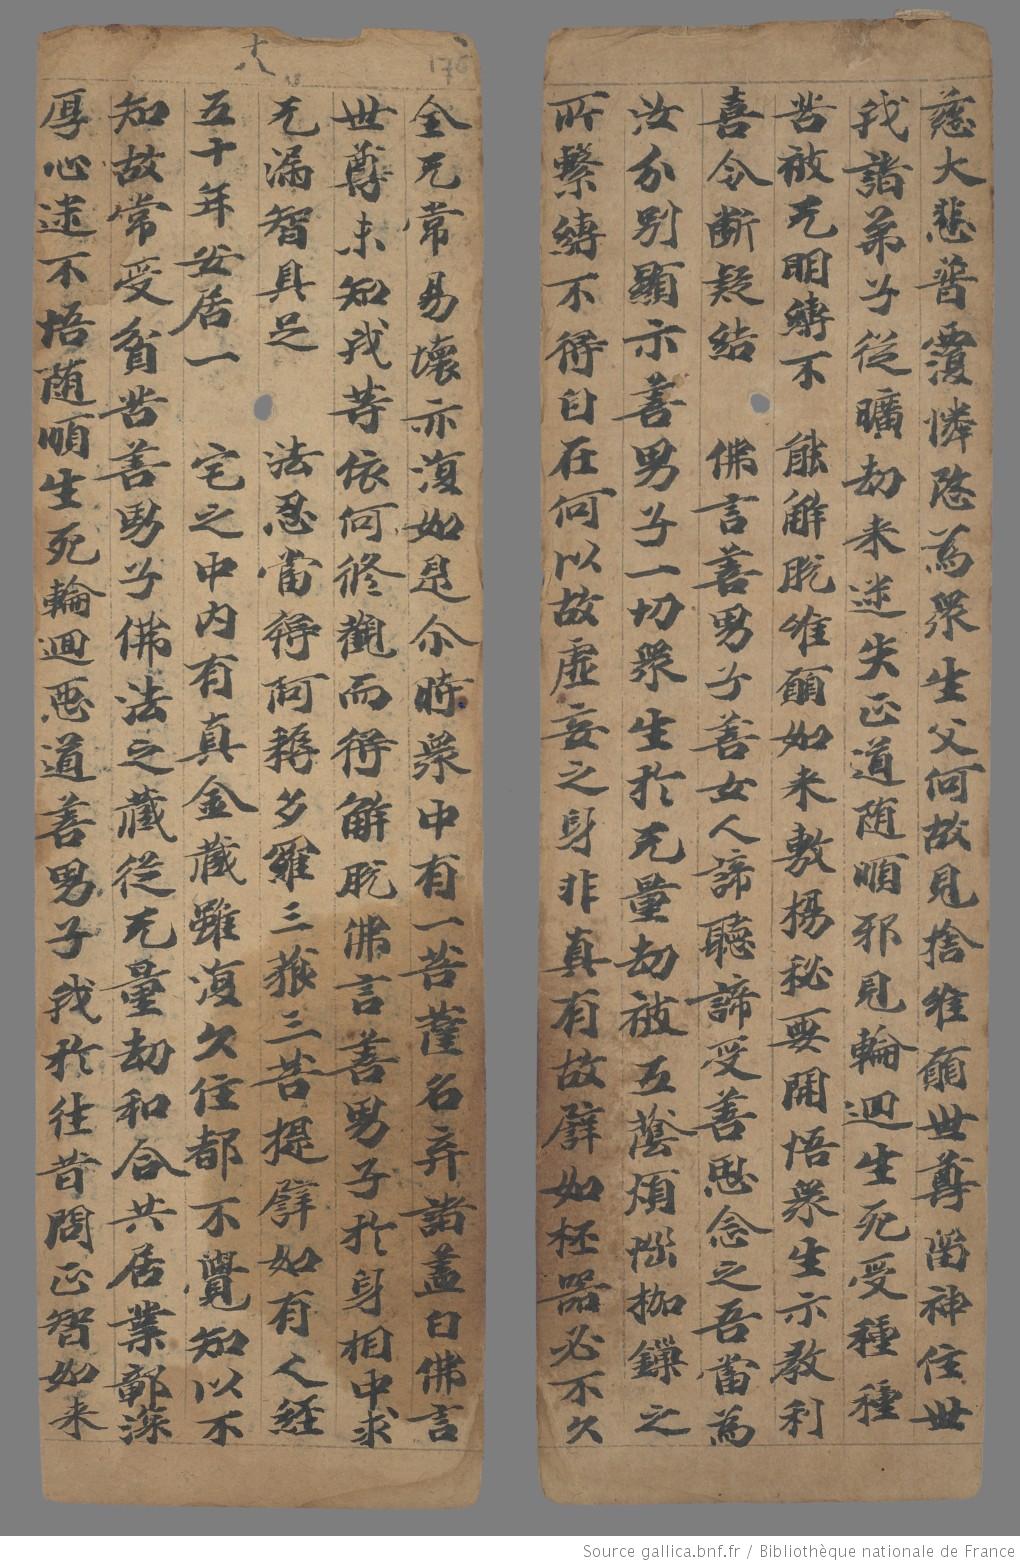 慈大悲普覆憐愍為眾生父何故見捨唯願世尊留神住世
我諸弟子從曠劫来迷失正道随順邪見輪迴生死受種種
苦被无明縛不能解脫唯願如来敷揚秘要開悟眾生示教利
喜令斷疑結佛言善男子善女人諦聽諦受善思念之吾當為
汝分別顯示善男子一切眾生於无量劫被五蔭煩惱枷鏁之
所繫縛不得自在何以故虛妄之身非真有故譬如坯器必不久
全无常易壞亦復如是尒時眾中有一菩薩名弃諸盖白佛言
世尊未知我等依何修觀而得解脫佛言善男子於身相中求
无漏智具足法忍當得阿耨多羅三藐三菩提譬如有人經
五十年安居一宅之中內有真金藏雖復久住都不覺知以不
知故常受貧苦善男子佛法之藏從无量劫和合共居業鄣深
厚心迷不悟随順生死輪迴惡道善男子我於往昔問正智如来
十八
18
176
Source gallica.bnf.fr / Bibliothèque nationale de France